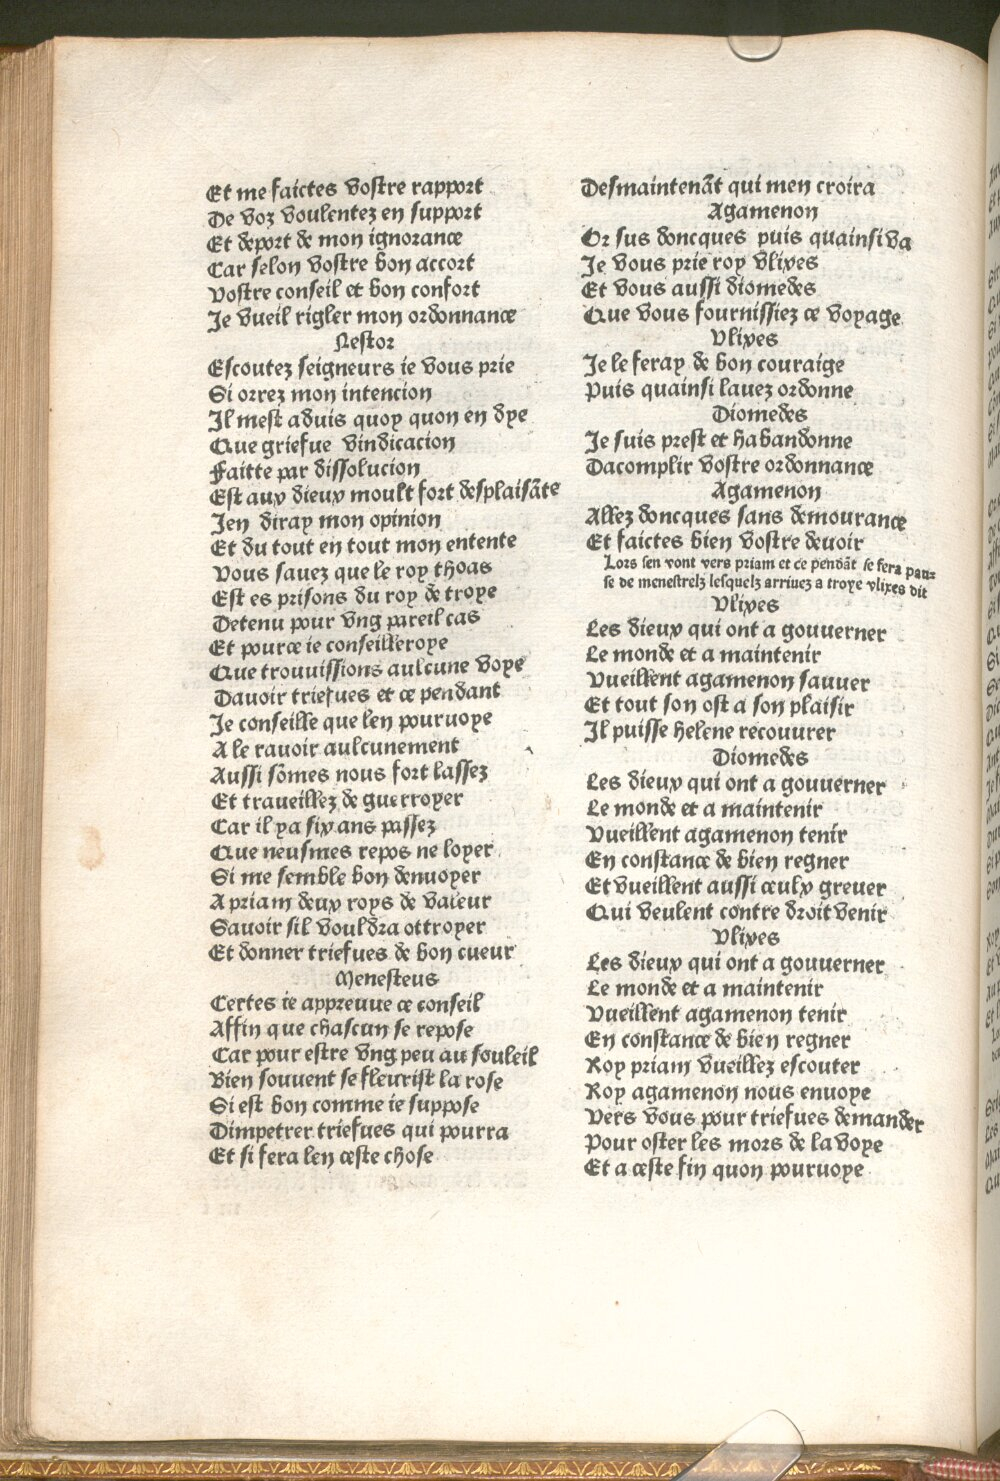 Et me faictes vostre rapport
De voz voulentez en support
Et deport de mon ignorance
Car selon vostre bon accort
Vostre conseil et bon confort
Je vueil rigler mon ordonnance
Nestor
Escoutez seigneurs ie vous prie
Si orrez mon intencion
Il mest aduis quoy quon en dye
Que griefue vindicacion
Faitte par dissolucion
Est aux dieux moult fort desplaisãte
Jen diray mon opinion
Et du tout en tout mon entente
Vous sauez que le roy thoas
Est es prisons du roy de troye
Detenu pour vng pareil cas
Et pource ie conseilleroye
Que trouuissions aulcune voye
Dauoir triefues et ce pendant
Je conseille que len pouruoye
A le rauoir aulcunement
Aussi sõmes nous fort lassez
Et traueillez de guerroyer
Car il ya six ans passez
Que neusmes repos ne loyer
Si me semble bon denuoyer
A priam deux roys de valeur
Sauoir sil vouldra ottroyer
Et donner triefues de bon cueur
Menesteus
Certes ie appreuue ce conseil
Affin que chascun se repose
Car pour estre vng peu au souleil
Bien souuent se fleurist la rose
Si est bon comme ie suppose
Dimpetrer triefues qui pourra
Et si fera len ceste chose
Desmaintenãt qui men croira
Agamenon
Or sus doncques puis quainsi va
Je vous prie roy vlixes
Et vous aussi diomedes
Que vous fournissiez ce voyage
Vlixes
Je le feray de bon couraige
Puis quainsi lauez ordonne
Diomedes
Je suis prest et habandonne
Dacomplir vostre ordonnance
Agamenon
Allez doncques sans demourance
Et faictes bien vostre deuoir
Lors sen vont vers priam et ce pendãt se fera pau-
se de menestrelz lesquelz arriuez a troye vlixes dit
Vlixes
Les dieux qui ont a gouuerner
Le monde et a maintenir
Vueillent agamenon sauuer
Et tout son ost a son plaisir
Il puisse helene recouurer
Diomedes
Les dieux qui ont a gouuerner
Le monde et a maintenir
Vueillent agamenon tenir
En constance de bien regner
Et vueillent aussi ceulx greuer
Qui veulent contre droit venir
Vlixes
Les dieux qui ont a gouuerner
Le monde et a maintenir
Vueillent agamenon tenir
En constance de bien regner
Roy priam vueillez escouter
Roy agamenon nous enuoye
Vers vous pour triefues demander
Pour oster les mors de la voye
Et a ceste fin quon pouruoye